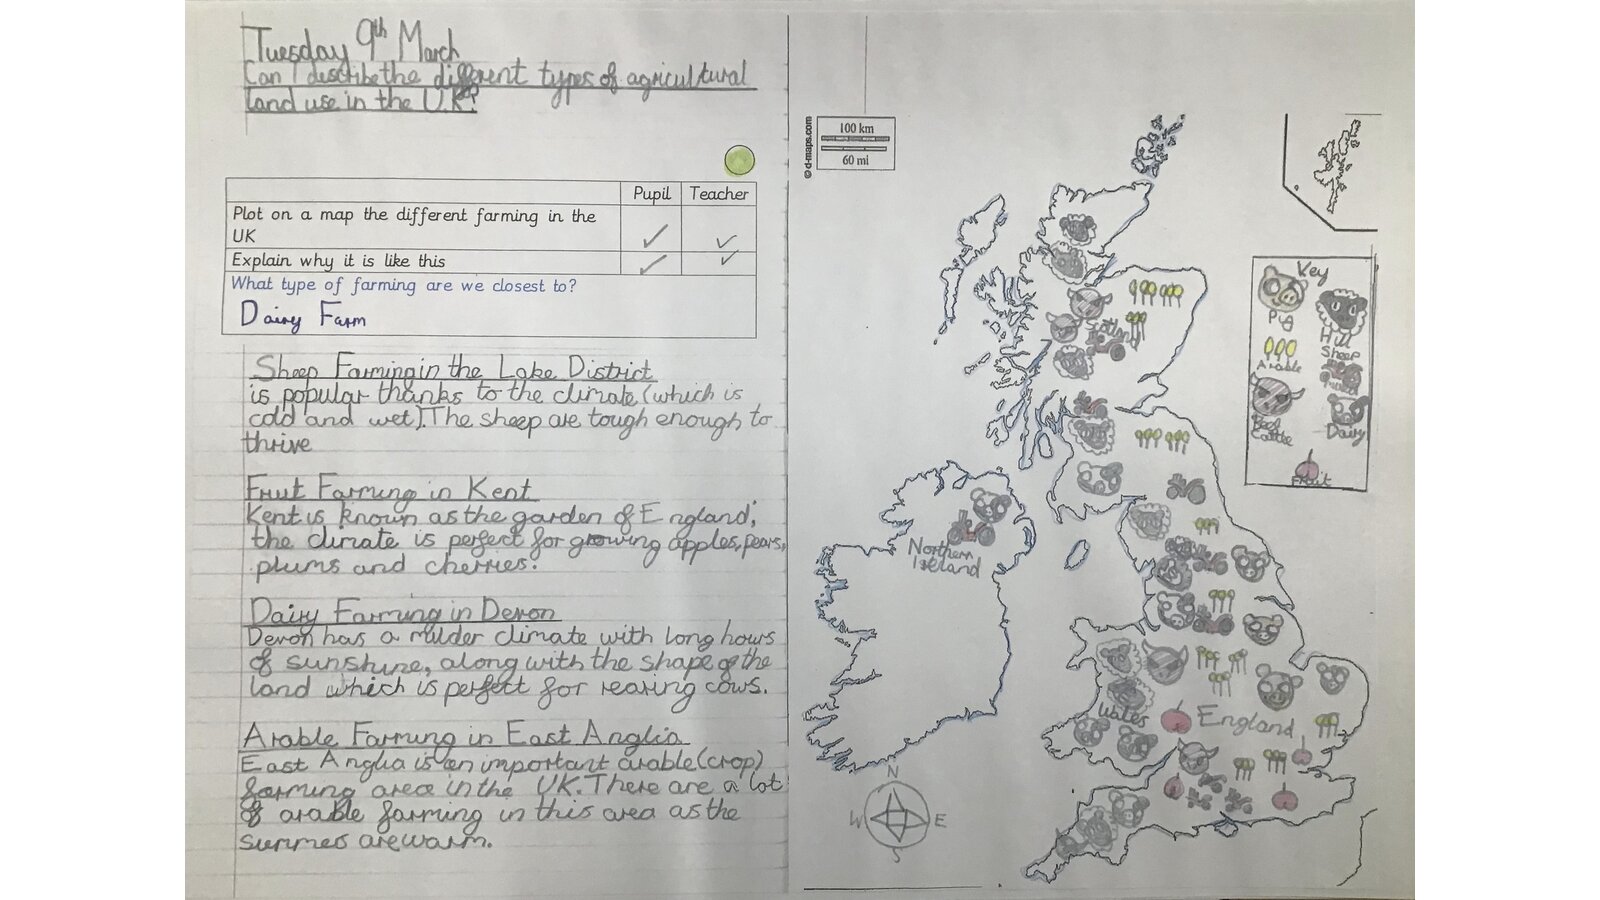 Tuesday 9th March
Can I describe the different types of agricultural
land use in the U.K?
Pupil Teacher
Plot on a map the different farming in the
UK
Explain why it is like this
What type of farming are we closest to?
Dairy Farm
Sheep Farming in the Lake District
is popular thanks to the climate (which is
cold and wet). The sheep are tough enough to
thrive
Fruit Farming in Kent
Kent is known as the garden of England;
the climate is perfect for growing apples, pears,
plums and cherries.
Dairy Farming in Devon
Devon has a milder climate with long hours
of sunshine, along with the shape of the
land which is perfect for rearing cows.
Arable Farming in East Anglia
East Anglia is an important arable (crop)
farming area in the UK. There are a lot
of arable farming in this area as the
summers are warm.
© d-maps.com
100 km
60 mi
Key
Pig
Hill
Sheep
Arable
Beef
Cattle
Dairy
Fruit
Scotland
Northern
Ireland
Wales
England
N
W E
S